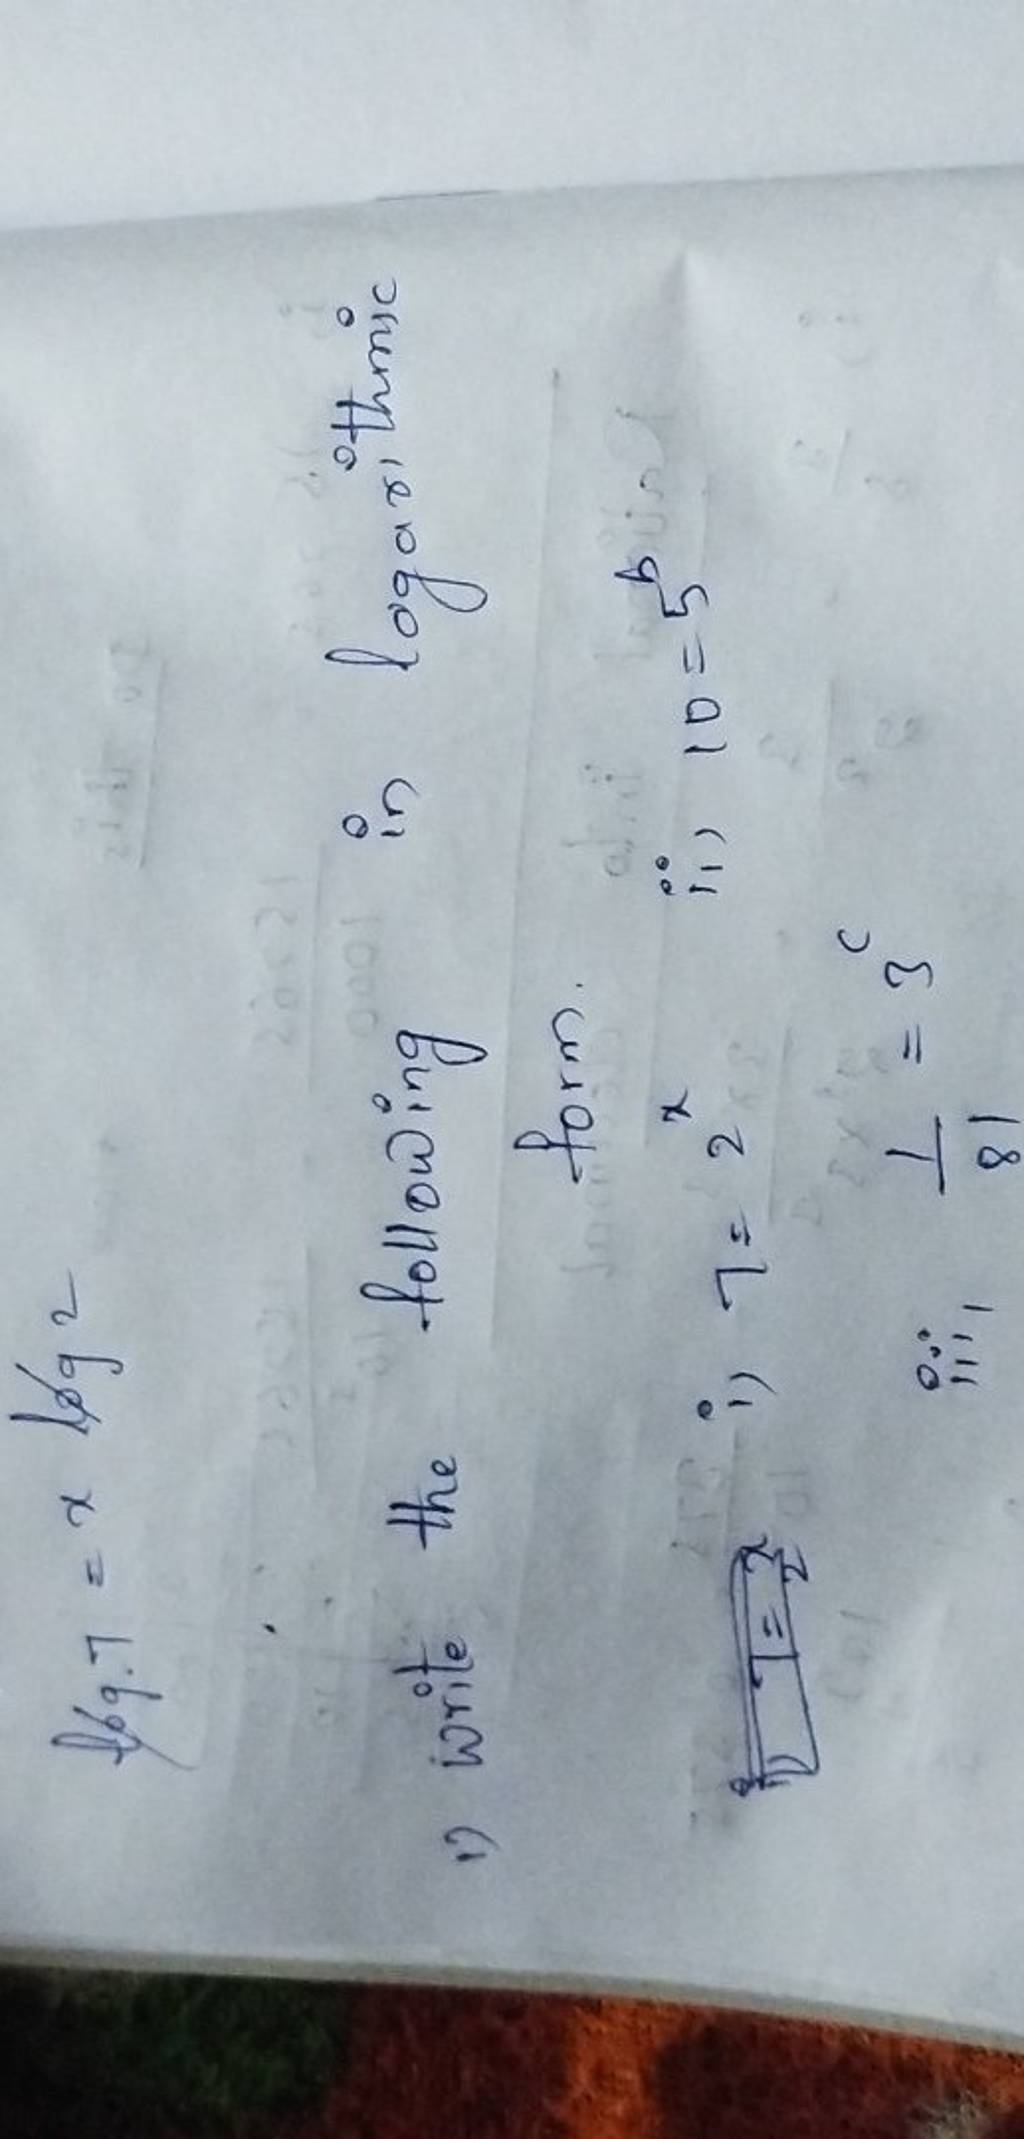 log 7 = x log 2
1) write the following in logarithmic
form.
i) 7 = 2
x
i) 7 = 2^x ii) 10 = 5^b
iii) 1/81 = 3^c